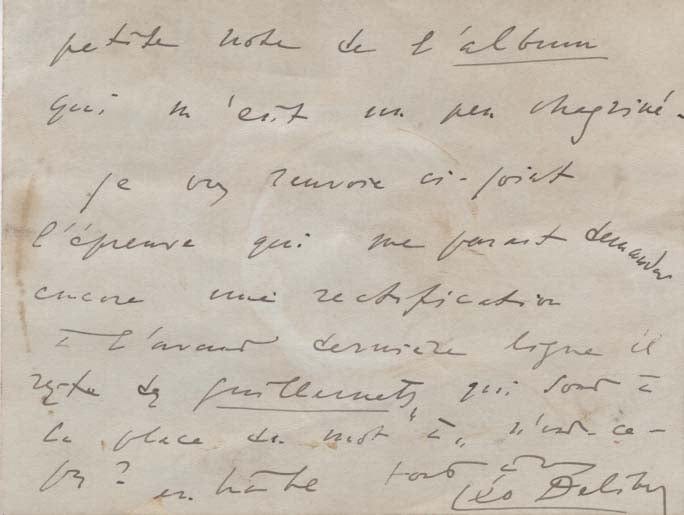 petite note de l'album
qui m'eût un peu chagriné.
Je vous renvoie ci-joint
l'épreuve qui me parait demander
encore une rectification
à l'avant dernière ligne il
reste des guillemets, qui sont à
la place du mot "à", n'est-ce-
pas? en hâte tout à vous
Léo Delibes